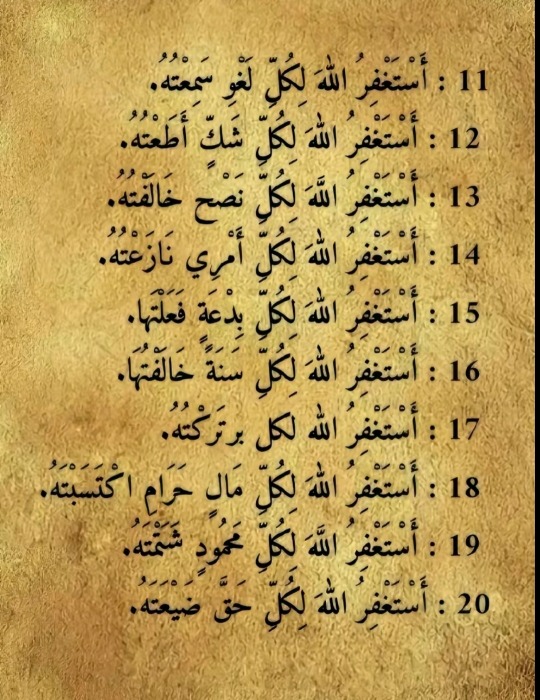 11 : أَسْتَغْفِرُ اللهَ لِكُلِّ لَغْوِ سَمِعْتُهُ.
12 : أَسْتَغْفِرُ اللهَ لِكُلِّ شَكٍّ أَطَعْتُه.
13 : أَسْتَغْفِرُ اللَّهَ لِكُلِّ نَصْح خَالَفْتُهُ.
14 : أَسْتَغْفِرُ اللهَ لِكُلِّ أَمْرِي نَازَعْتُهُ.
15 : أَسْتَغْفِرُ اللهَ لِكُلِّ بِدْعَةٍ فَعَلْتَها.
16 : أَسْتَغْفِرُ اللهَ لِكُلِّ سَنَةً خَالَفْتُهَا.
17 : أَسْتَغْفِرُ الله لكل برتَركْتُهُ.
18 : أَسْتَغْفِرُ اللهَ لِكُلِّ مَالٍ حَرَامِ اكْتَسَبْتَهُ.
19 : أَسْتَغْفِرُ اللَّهَ لِكُلِّ مَحْمُودٍ شَتَمْتَهُ.
20 : أَسْتَغْفِرُ اللهَ لِكُلِّ حَقَّ ضَيْعَتَهُ.